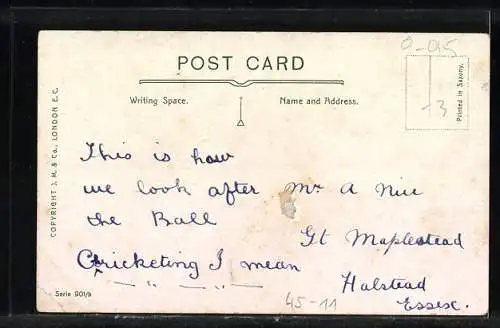 POST CARD
Writing Space.
Name and Address.
Printed in Saxony.
COPYRIGHT J. M. & Co., LONDON E.C.
This is how
we look after
the Ball
Cricketing I mean
" " "
Mr A Nice
Gt Maplestead
Halstead
Essex.
Serie 901/9
45-11
-3